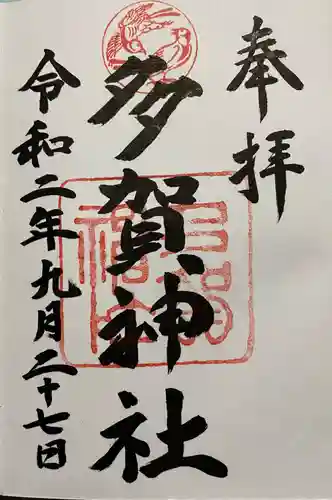 奉拝
多賀神社
令和二年九月二十七日